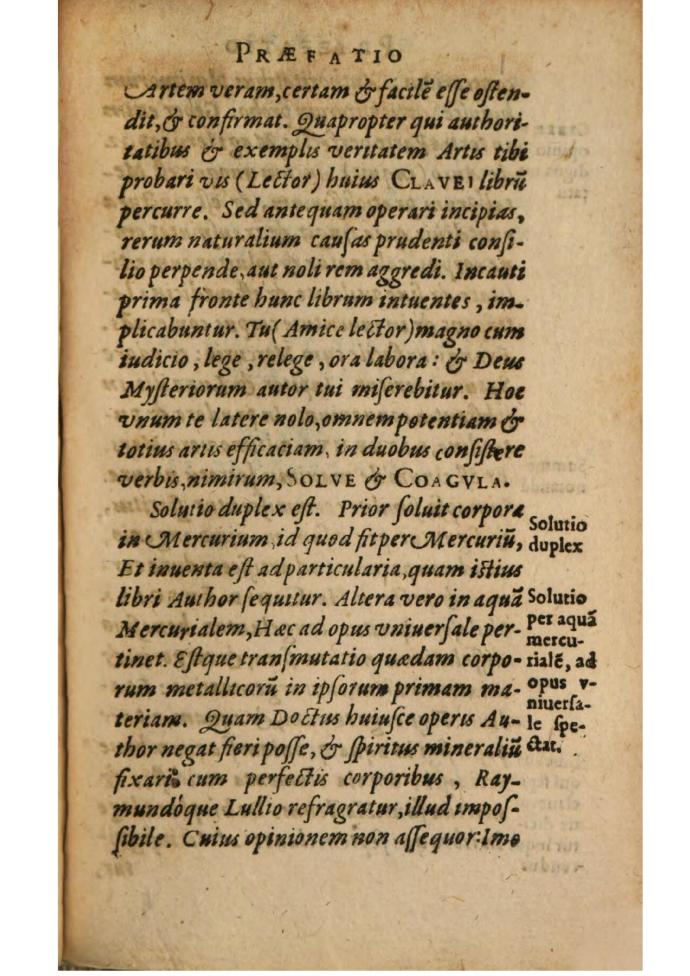 PRÆFATIO
Artem veram, certam & facilẽ eſſe oſten-
dit, & confirmat. Quapropter qui authori-
tatibus & exemplis veritatem Artis tibi
probari vis (Lector) huius CLAVEI librũ
percurre. Sed antequam operari incipias,
rerum naturalium cauſas prudenti conſi-
lio perpende, aut noli rem aggredi. Incauti
prima fronte hunc librum intuentes, im-
plicabuntur. Tu (Amice lector) magno cum
iudicio, lege, relege, ora labora: & Deus
Myſteriorum autor tui miſerebitur. Hoc
vnum te latere nolo, omnem potentiam &
totius artis efficaciam, in duobus conſiſtere
verbis, nimirum, SOLVE & COAGVLA.
Solutio duplex eſt. Prior ſoluit corpora
in Mercurium, id quod fit per Mercuriũ,
Et inuenta eſt ad particularia, quam iſtius
libri Author ſequitur. Altera vero in aquã
Mercurialem, Hæc ad opus vniuerſale per-
tinet. Eſtque tranſmutatio quædam corpo-
rum metallicorũ in ipſorum primam ma-
teriam. Quam Doctus huiuſce operis Au-
thor negat fieri poſſe, & ſpiritus mineraliũ
fixari cum perfectis corporibus, Ray-
mundóque Lullio refragratur, illud impoſ-
ſibile. Cuius opinionem non aſſequor: Imo
Solutio
duplex
Solutio
per aquã
mercu-
rialẽ, ad
opus v-
niuerſa-
le ſpe-
ctat.